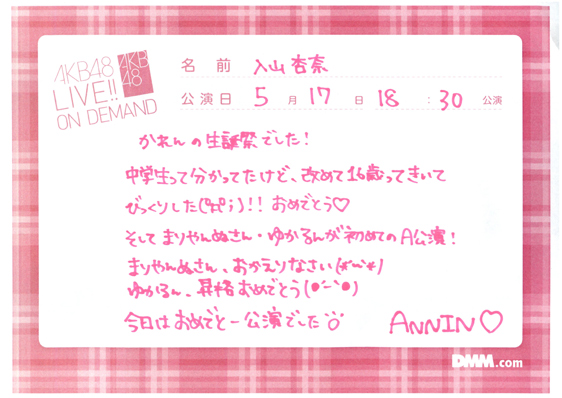 AKB48
LIVE!!
ON DEMAND
AKB
48
名 前 入山杏奈
公演日 5 月 17 日 18 : 30 公演
かれんの生誕祭でした!
中学生って分かってたけど、改めて16歳ってきいて
びっくりした(°Д°;)!! おめでとう♡
そして まりやんぬさん・ゆかるんが初めてのA公演!
まりやんぬさん、おかえりなさい(*´`*)
ゆかるん、昇格おめでとう(●´ｰ`●)
今日はおめでとー公演でした
ANNIN♡
DMM.com